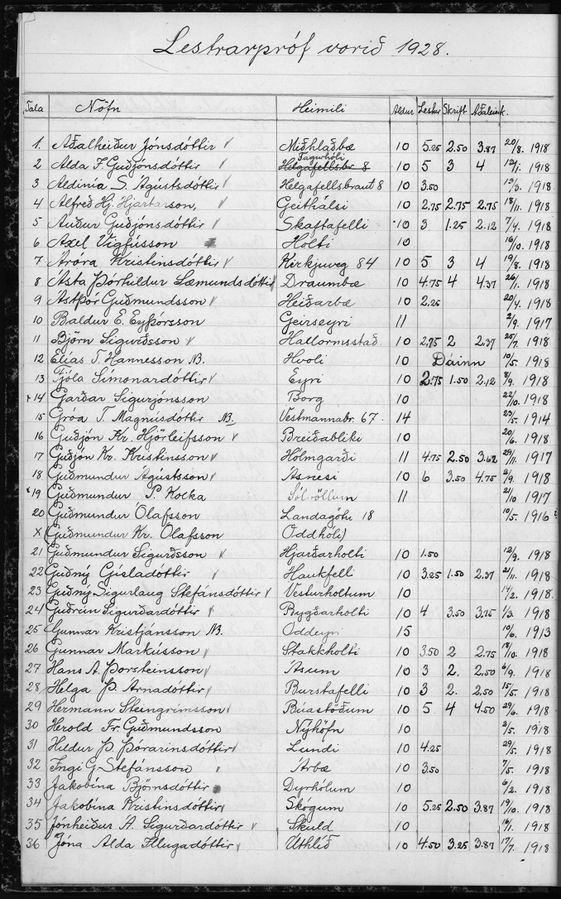 Lestrarpróf vorið 1928.
Tala Nöfn Heimili Aldur Lestur Skrift Aðaleink.
1. Aðalheiður Jónsdóttir v Miðhlaðbæ 10 5.25 2.50 3.87 20/8. 1918
Fagurhóli
2 Alda F. Guðjónsdóttir v Helgafellsbr 8 10 5 3 4 1918
3 Aldinia S. Ágústsdóttir v Helgafellsbraut 8 10 3.50 1918
4 Alfred Hj. Hjartarson, v Geithálsi 10 2.75 2.75 2.75 18/11. 1918
5 Auður Guðjónsdóttir v Skaftafelli 10 3 1.25 2.12 7/4. 1918
6 Axel Vigfússon Holti 10 16/10. 1918
7 Aróra Kristinsdóttir v Kirkjuveg 84 10 5 3 4 19/8. 1918
8 Ásta Þórhildur Sæmundsdóttir Draumbæ 10 4.75 4 4.37 26/1. 1918
9 Ástþór Guðmundsson v Heiðarbæ 10 2.25 20/4. 1918
10 Baldur E. Eyþórsson Geirseyri 11 2/9. 1917
11 Björn Sigurðsson v Hallormsstað 10 2.75 2 2.37 25/7. 1918
12 Elías T. Hannesson NB. Hvoli 10 Dáinn 10/5. 1918
13 Fjóla Símonardóttir v Eyri 10 2.75 1.50 2.12 8/9. 1918
14 Garðar Sigurjónsson Borg 10 22/10. 1918
15 Gróa T. Magnúsdóttir NB. Vestmannabr. 67. 14 23/5. 1914
16 Guðjón Kr. Hjörleifsson v Breiðabliki 10 20/6. 1918
17 Guðjón Kr. Kristinsson v Hólmgarði 11 4.75 2.50 3.62 29/11. 1917
18 Guðmundur Ágústsson v Ásnesi 10 6 3.50 4.75 2/9. 1918
19 Guðmundur P. Kolka Sólvöllum 11 21/10 1917
20 Guðmundur Ólafsson Landagötu 18 10/5. 1916
x Guðmundur Kr. Ólafsson Oddhól
21 Guðmundur Sigurðsson v Hjarðarholti 10 1.50 12/9. 1918
22 Guðný Gísladóttir v Haukfelli 10 3.25 1.50 2.37 21/11. 1918
23 Guðný Sigurlaug Stefánsdóttir v Vesturholtum 10 17/2. 1918.
24 Guðrún Sigurðardóttir v Bygðarholti 10 4 3.50 3.75 1/3. 1918
25 Gunnar Kristjánsson NB. Oddeyri 15 10/6. 1913
26 Gunnar Markússon v Stakkholti 10 3.50 2 2.75 18/10. 1918
27 Hans A. Þorsteinsson v Ásum 10 3 2. 2.50 6/9. 1918
28 Helga Þ. Árnadóttir v Burstafelli 10 3 2. 2.50 15/5. 1918
29 Hermann Steingrímsson v Búastöðum 10 5 4 4.50 29/6. 1918
30 Herold Fr. Guðmundsson Nýhöfn 10 2/5. 1918
31 Hildur Þ. Þórarinsdóttir Lundi 10 4.25 29/5. 1918
32 Ingi G. Stefánsson v Árbæ 10 3.50 7/5. 1918
33 Jakobína Björnsdóttir Dyrhólum 10 6/2. 1918
34 Jakobína Kristinsdóttir Skógum 10 5.25 2.50 3.87 1918
35 Jónheiður A. Sigurðardóttir v Skuld 10 1918
36 Jóna Alda Illugadóttir Úthlíð 10 4.50 3.25 3.87 17/7. 1918